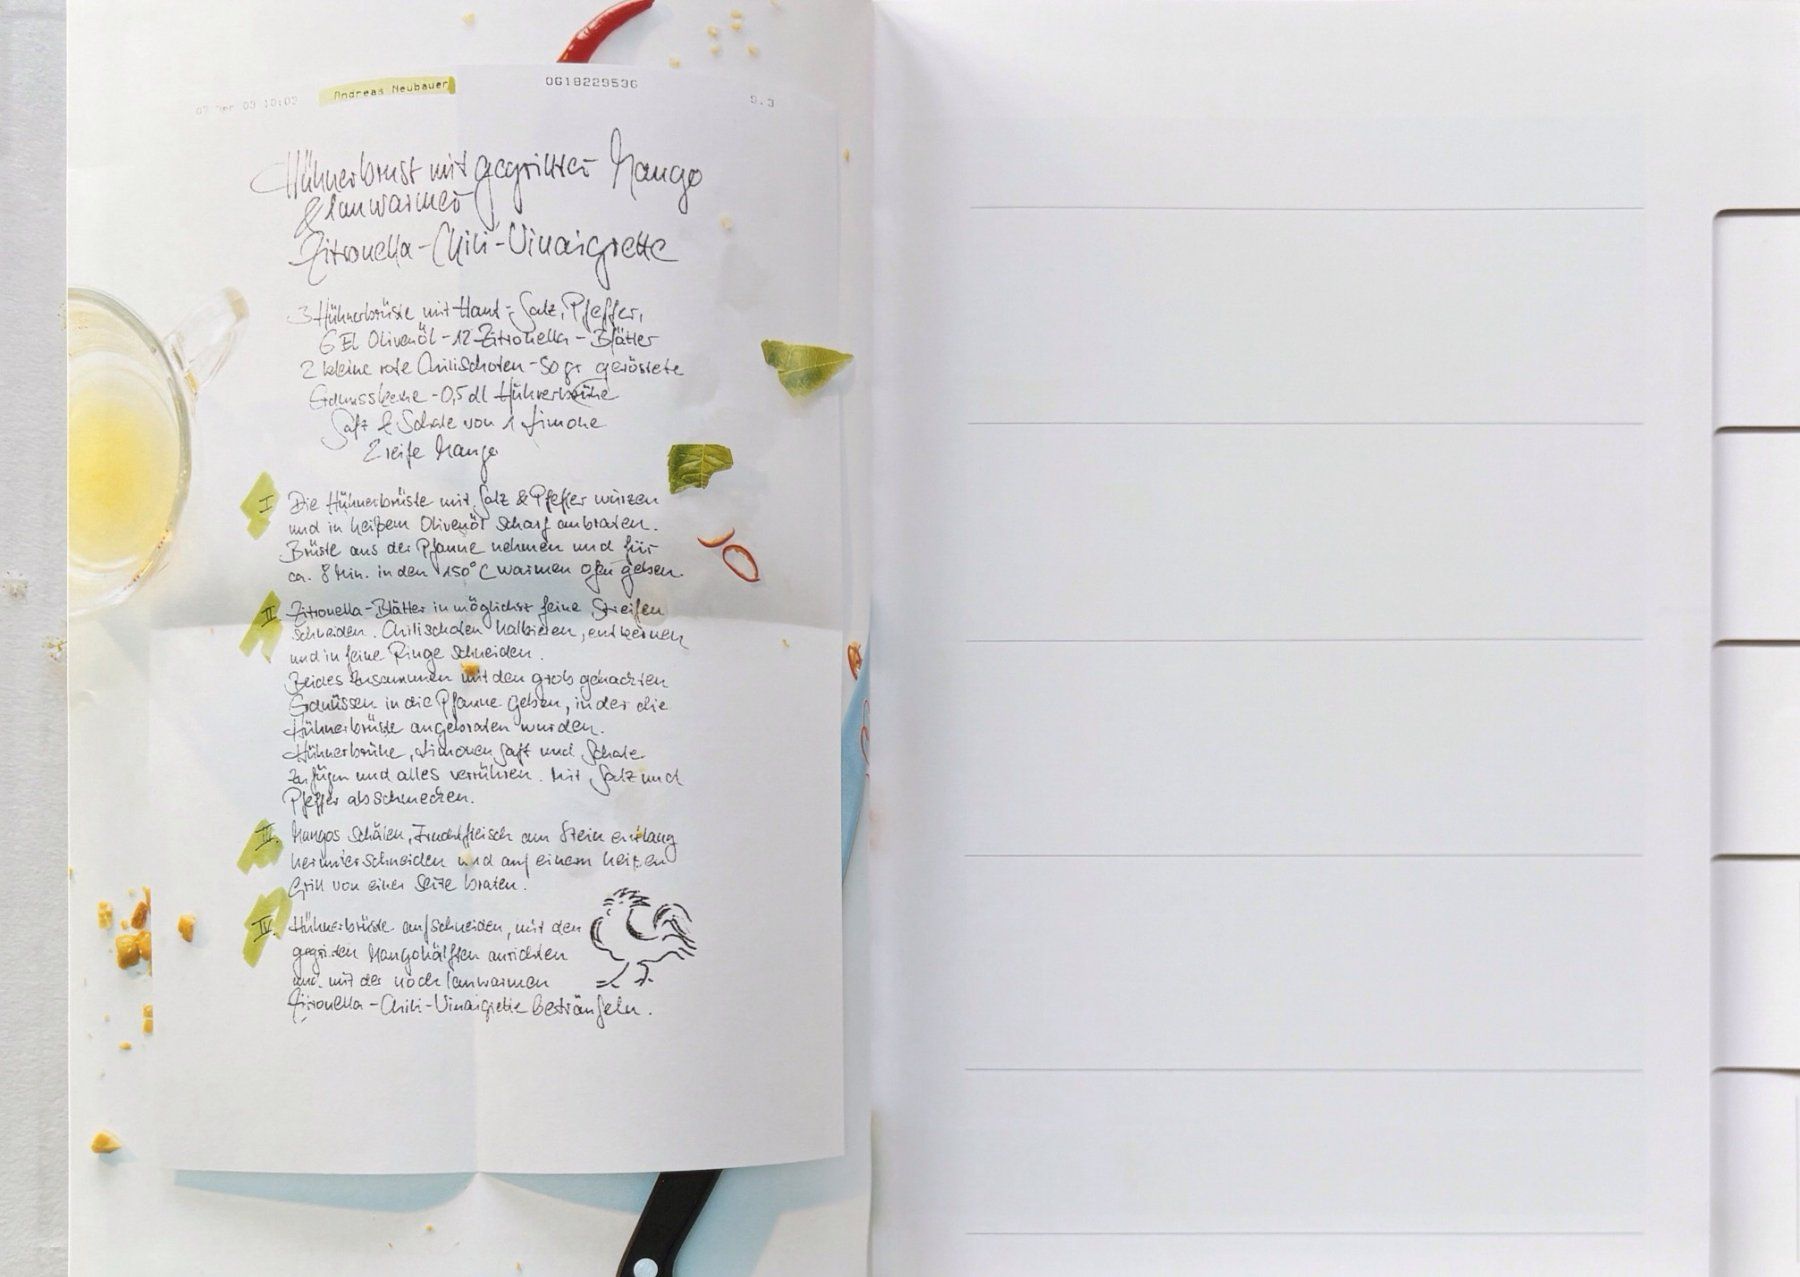 Andreas Neubauer
0618229536
S.3
Hühnerbrust mit gegrillter Mango
& lauwarmer
Zitronella-Chili-Vinaigrette
3 Hühnerbrüste mit Haut - Salz, Pfeffer,
6 EL Olivenöl - 12 Zitronella-Blätter
2 kleine rote Chilischoten - 50 gr geröstete
Erdnusskerne - 0,5 dl Hühnerbrühe
Saft & Schale von 1 Limone
2 reife Mango
I Die Hühnerbrüste mit Salz & Pfeffer würzen
und in heißem Olivenöl scharf anbraten.
Brüste aus der Pfanne nehmen und für
ca. 8 Min. in den 150°C warmen Ofen geben.
II Zitronella-Blätter in möglichst feine Streifen
schneiden. Chilischoten halbieren, entkernen
und in feine Ringe schneiden.
Beides zusammen mit den grob gehackten
Erdnüssen in die Pfanne geben, in der die
Hühnerbrüste angebraten wurden.
Hühnerbrühe, Limonensaft und Schale
zufügen und alles verrühren. Mit Salz und
Pfeffer abschmecken.
III. Mangos schälen, Fruchtfleisch am Stein entlang
herunterschneiden und auf einem heißen
Grill von einer Seite braten.
IV. Hühnerbrüste aufschneiden, mit den
gegrillten Mangohälften anrichten
und mit der noch lauwarmen
Zitronella-Chili-Vinaigrette beträufeln.